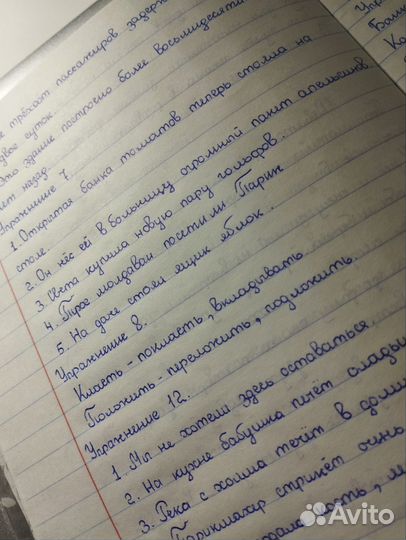 трёхсот пассажиров
двое суток.
Это здание построено более восьмидесяти
лет назад.
Упражнение 7.
1. Открытая банка томатов теперь стояла на
столе.
2. Он нёс ей в больницу огромный пакет апельсинов.
3. Света купила новую пару гольфов.
4. Трое молдаван посетили Париж
5. На даче стоял ящик яблок.
Упражнение 8.
Класть - покласть, вкладывать.
Положить - переложить, подложить.
Упражнение 12.
1. Мы не хотели здесь оставаться.
2. На кухне бабушка печёт
3. Река с холма течёт в
Парикмахер стрижёт очень
Avito